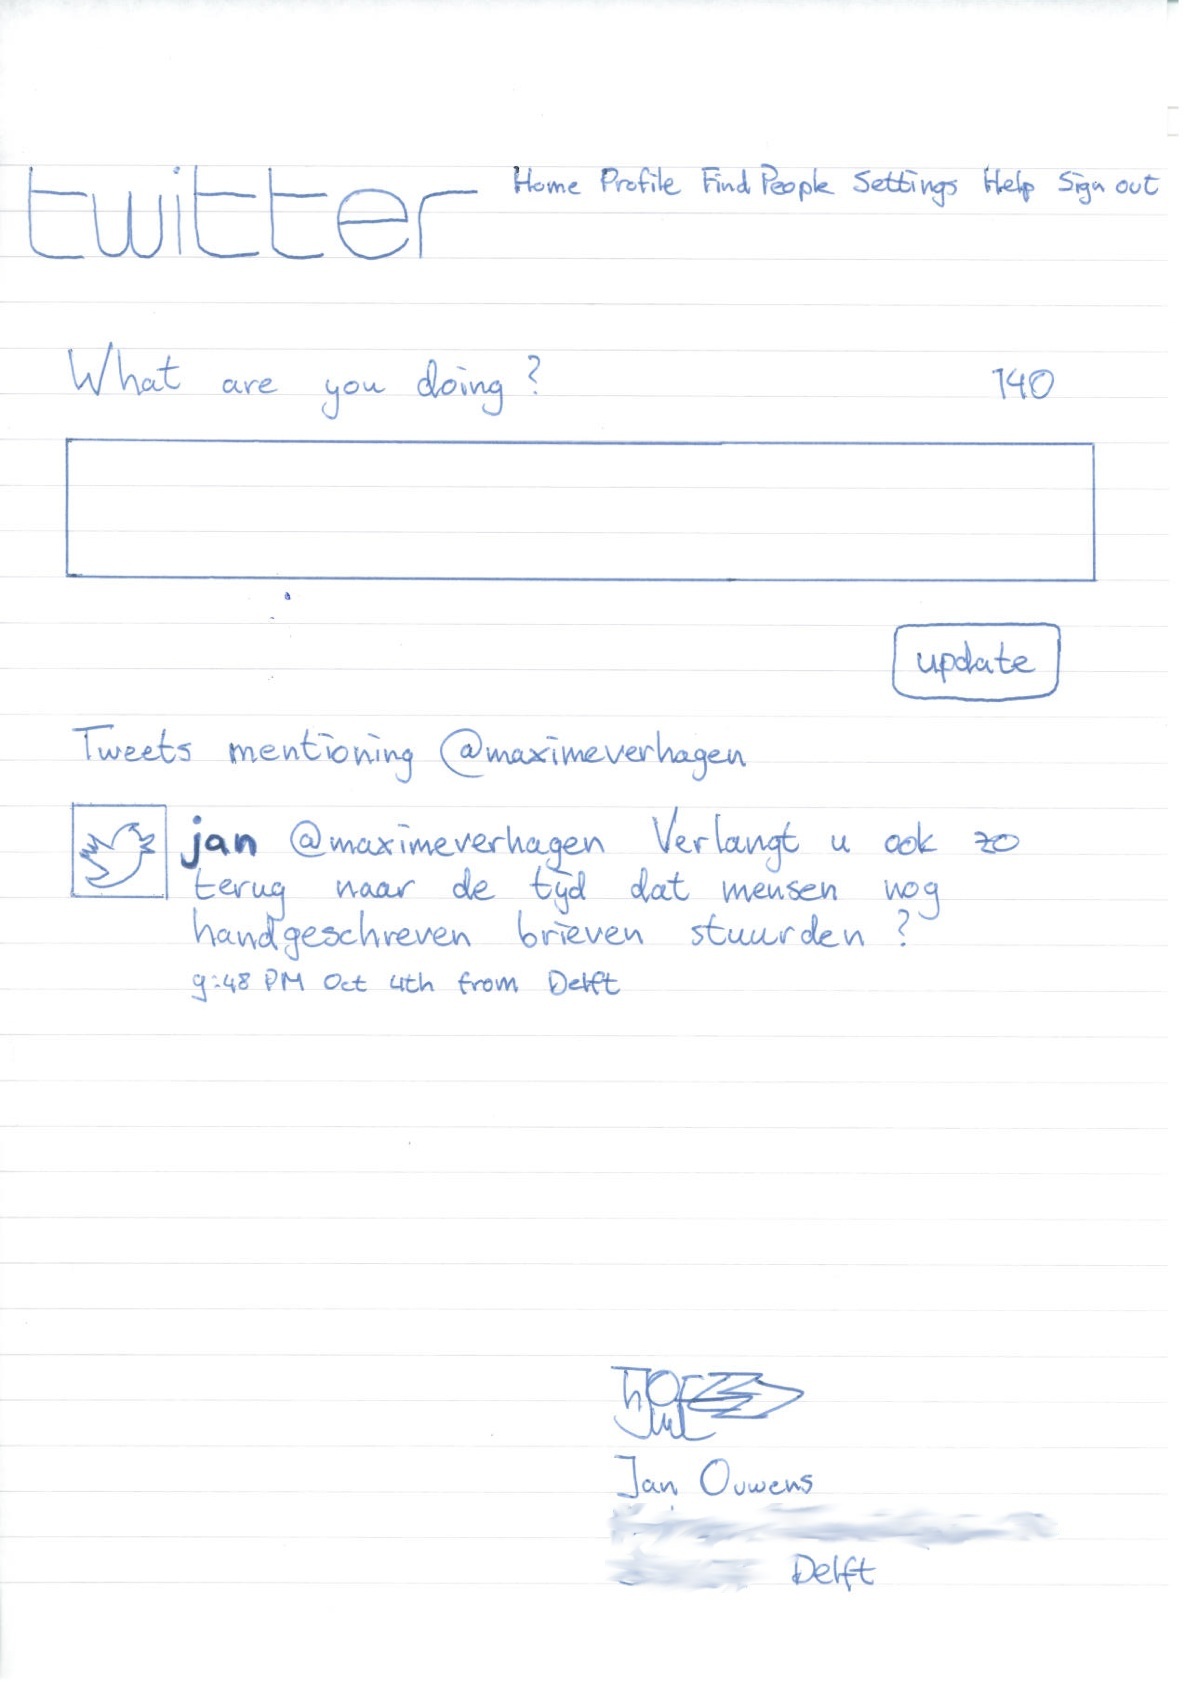 twitter Home Profile Find People Settings Help Sign out
What are you doing? 140
update
Tweets mentioning @maximeverhagen
jan @maximeverhagen Verlangt u ook zo
terug naar de tijd dat mensen nog
handgeschreven brieven stuurden?
9:48 PM Oct 4th from Delft
Jan Ouwens
Delft